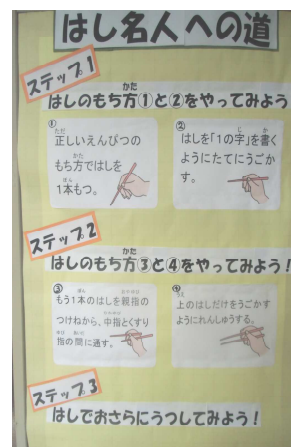 はし名人への道
ステップ1
はしのもち方①と②をやってみよう
①
正しいえんぴつの
もち方ではしを
1本もつ。
②
はしを「1の字」を書く
ようにたてにうごか
す。
ステップ2
はしのもち方③と④をやってみよう!
③
もう1本のはしを親指の
つけねから、中指とくすり
指の間に通す。
④
上のはしだけをうごかす
ようにれんしゅうする。
ステップ3
はしでおさらにうつしてみよう!